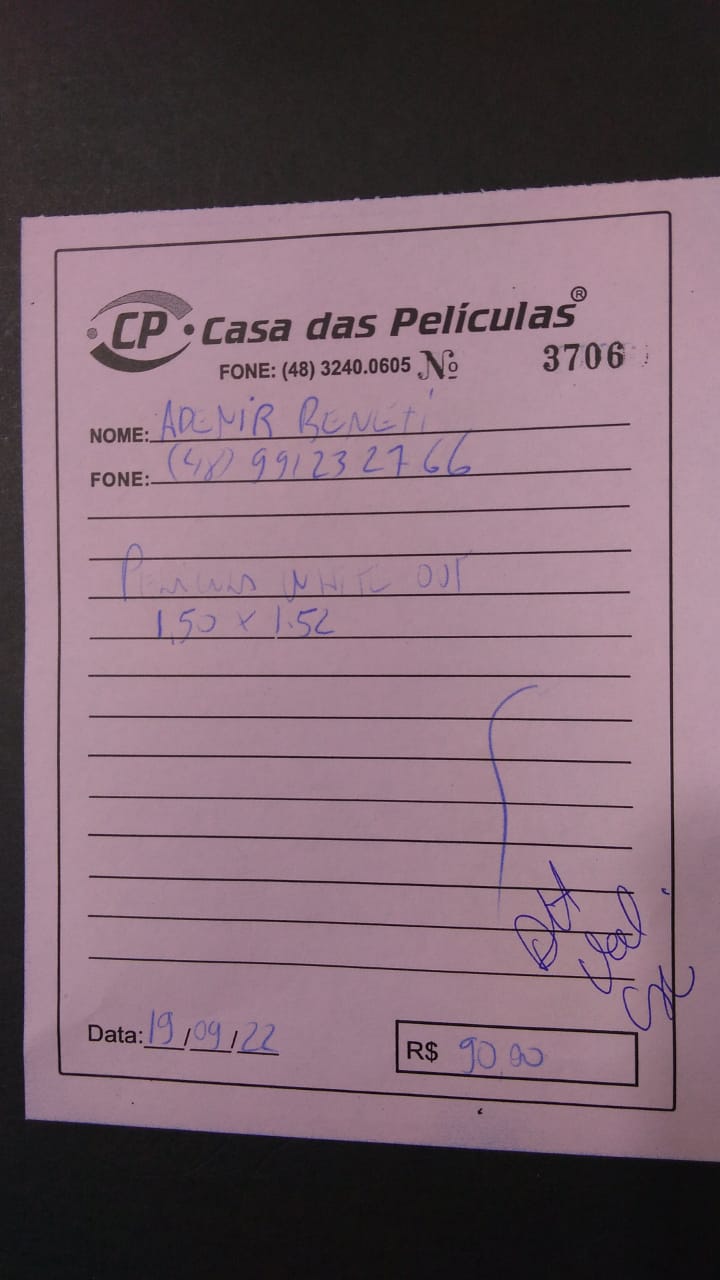 CP Casa das Películas®
FONE: (48) 3240.0605 Nº 3706
NOME: ADEMIR BENETI
FONE: (48) 991232766
PELICULA WHITE OUT
1,50 x 1.52
Data: 19/09/22
R$ 90,00